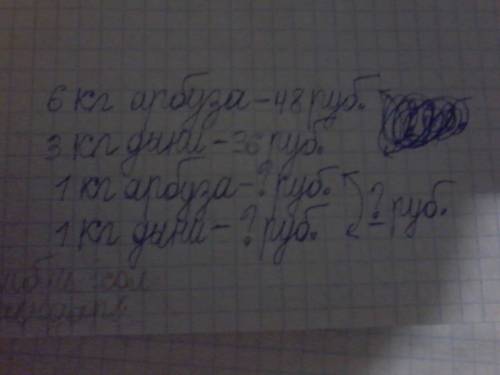 6 кг арбуза - 48 руб.
3 кг дыни - 36 руб.
1 кг арбуза - ? руб.
1 кг дыни - ? руб. ? руб.